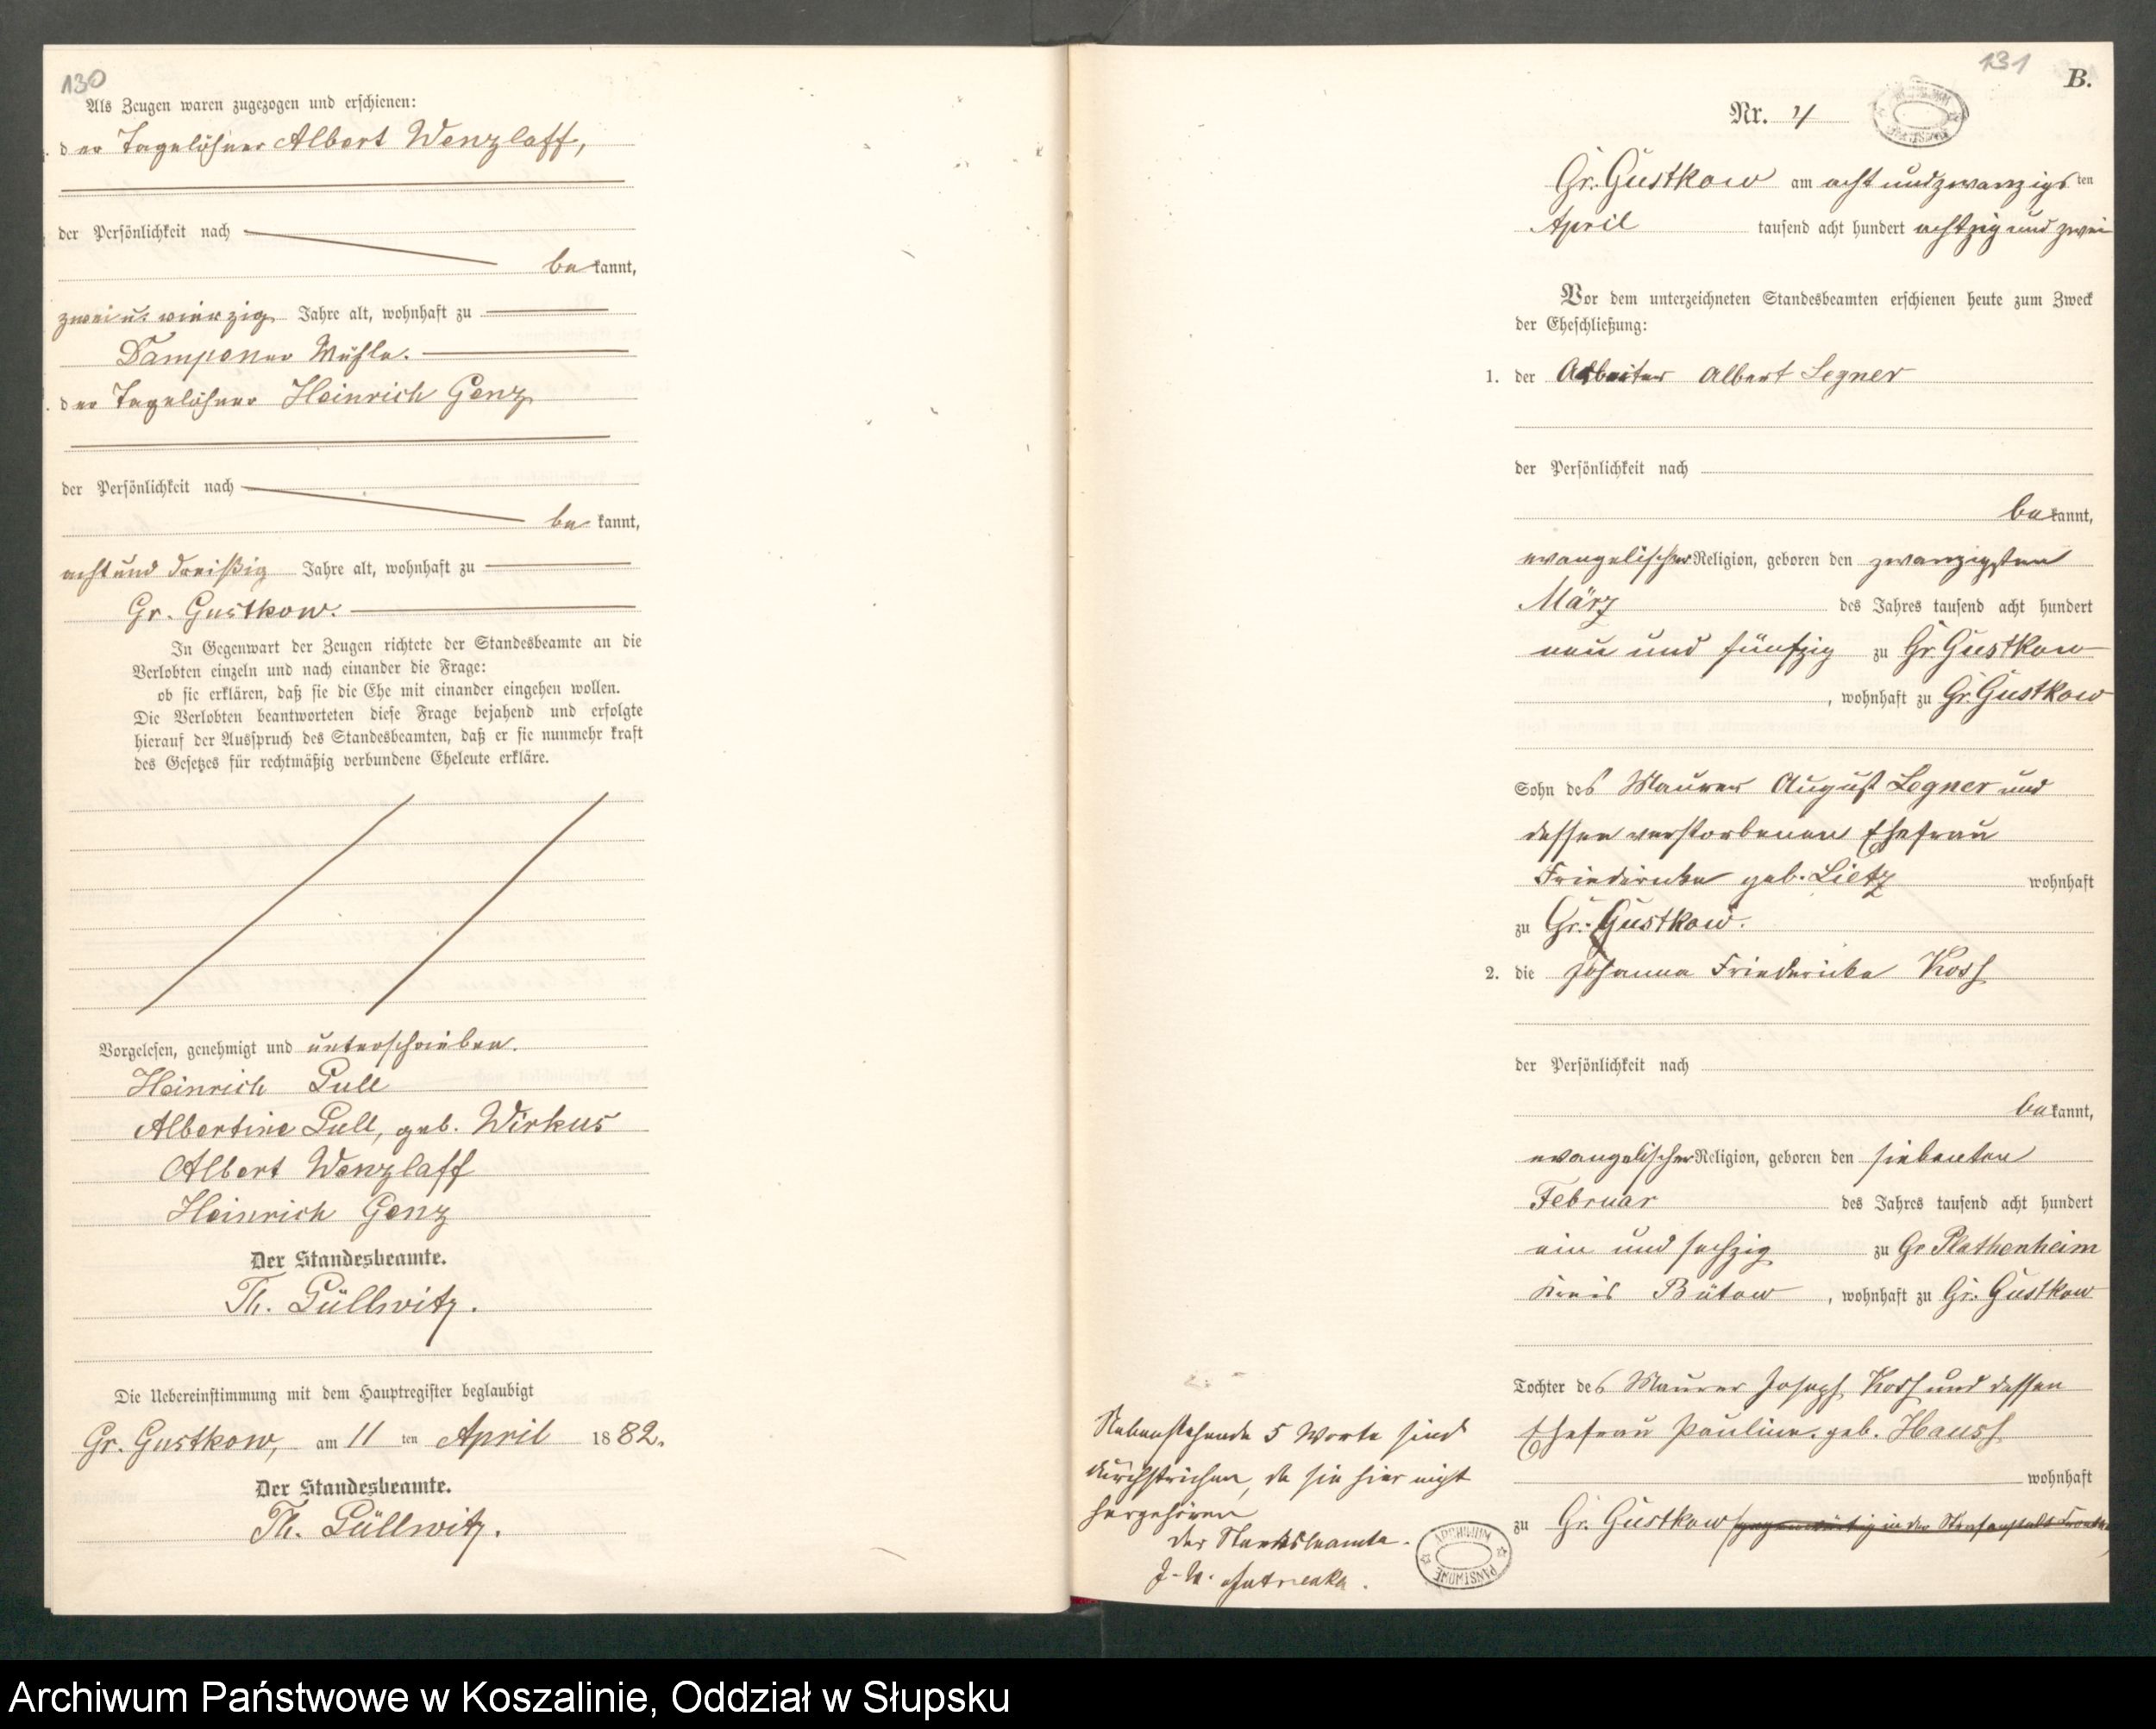 130
Als Zeugen waren zugezogen und erschienen:
der Tagelöhner Albert Wenzlaff,
der Persönlichkeit nach
bekannt,
zwei u. vierzig Jahre alt, wohnhaft zu
Damponer Mühle.
der Tagelöhner Heinrich Genz
der Persönlichkeit nach
be kannt,
acht und dreißig Jahre alt, wohnhaft zu
Gr. Gustkow.
In Gegenwart der Zeugen richtete der Standesbeamte an die
Verlobten einzeln und nach einander die Frage:
ob sie erklären, daß sie die Ehe mit einander eingehen wollen.
Die Verlobten beantworteten diese Frage bejahend und erfolgte
hierauf der Ausspruch des Standesbeamten, daß er sie nunmehr kraft
des Gesetzes für rechtmäßig verbundene Eheleute erkläre.
Vorgelesen, genehmigt und unterschrieben.
Heinrich Pull
Albertine Pull, geb. Wirkus
Albert Wenzlaff
Heinrich Genz
Der Standesbeamte.
Th. Püllwitz.
Die Uebereinstimmung mit dem Hauptregister beglaubigt
Gr. Gustkow, am 11 ten April 1882.
Der Standesbeamte.
Th. Püllwitz.
131
B.
Nr. 4
Gr. Gustkow am acht und zwanzigsten
April tausend acht hundert achtzig und zwei
Vor dem unterzeichneten Standesbeamten erschienen heute zum Zweck
der Eheschließung:
1. der Arbeiter Albert Legner
der Persönlichkeit nach
bekannt,
evangelischer Religion, geboren den zwanzigsten
März des Jahres tausend acht hundert
neun und fünfzig zu Gr. Gustkow
, wohnhaft zu Gr. Gustkow
Sohn des Maurer August Legner und
dessen verstorbenen Ehefrau
Friedericke geb. Lietz wohnhaft
zu Gr. Gustkow.
2. die Johanna Friedericke Koss
der Persönlichkeit nach
bekannt,
evangelischer Religion, geboren den siebenten
Februar des Jahres tausend acht hundert
ein und sechzig zu Gr Plathenheim
Kreis Bütow, wohnhaft zu Gr. Gustkow
Tochter des Maurer Joseph Koss und dessen
Ehefrau Pauline. geb. Hauss
wohnhaft
zu Gr. Gustkow (gegenwärtig in der Strafanstalt
Nebenstehende 5 Worte sind
durchstrichen, da sie hier nicht
hergehören
Der Standesbeamte.
ARCHIWUM
PAŃSTWOWE
Archiwum Państwowe w Koszalinie, Oddział w Słupsku